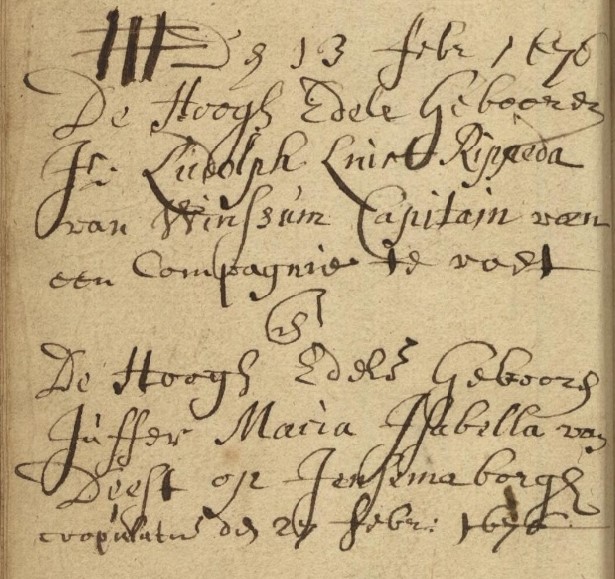 Dn 13 febr 1676
De Hoogh Edele Gebooren
Jr. Ludolph Luirt Rippeda
van Winssum Capitain van
een Compagnie te voet
en
De Hoogh Edele Geboorn
Juffer Maria Isabella van
Diest op Jensemaborgh
copulatu dn 27 febr: 1676